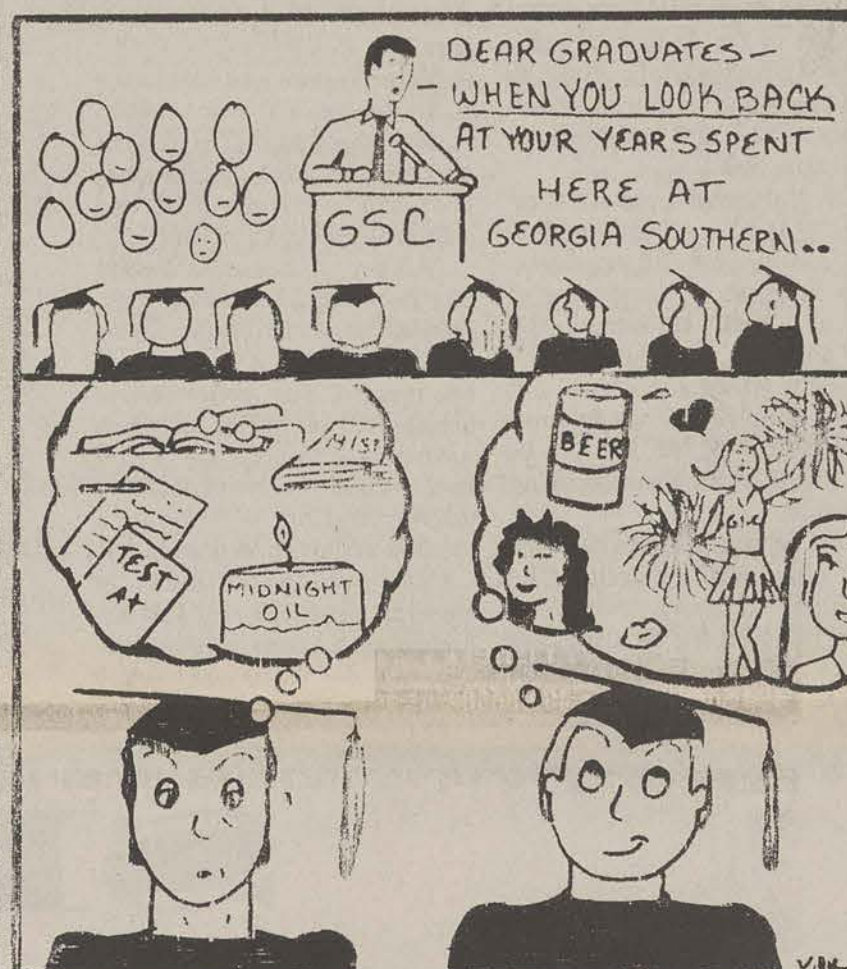 DEAR GRADUATES —
WHEN YOU LOOK BACK
AT YOUR YEARS SPENT
HERE AT
GEORGIA SOUTHERN..
GSC
HIST
TEST
A+
MIDNIGHT
OIL
BEER
GSC